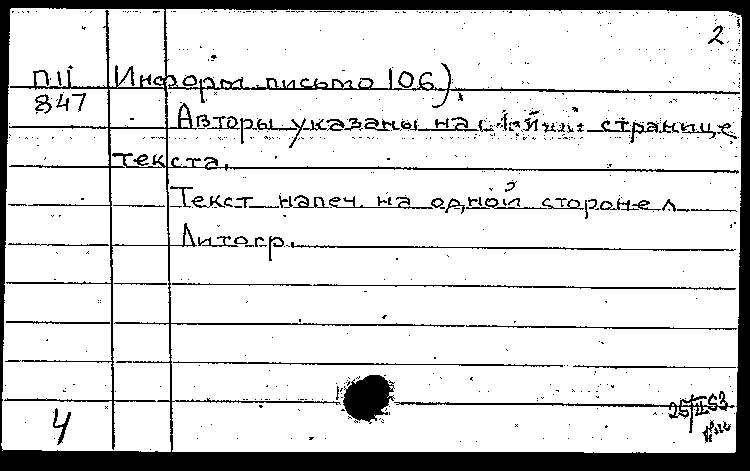 2
П11 Информ. письмо 106).
847
Авторы указаны на странице
текста.
Текст напеч. на одной стороне л
Литогр.
4
25/II 53